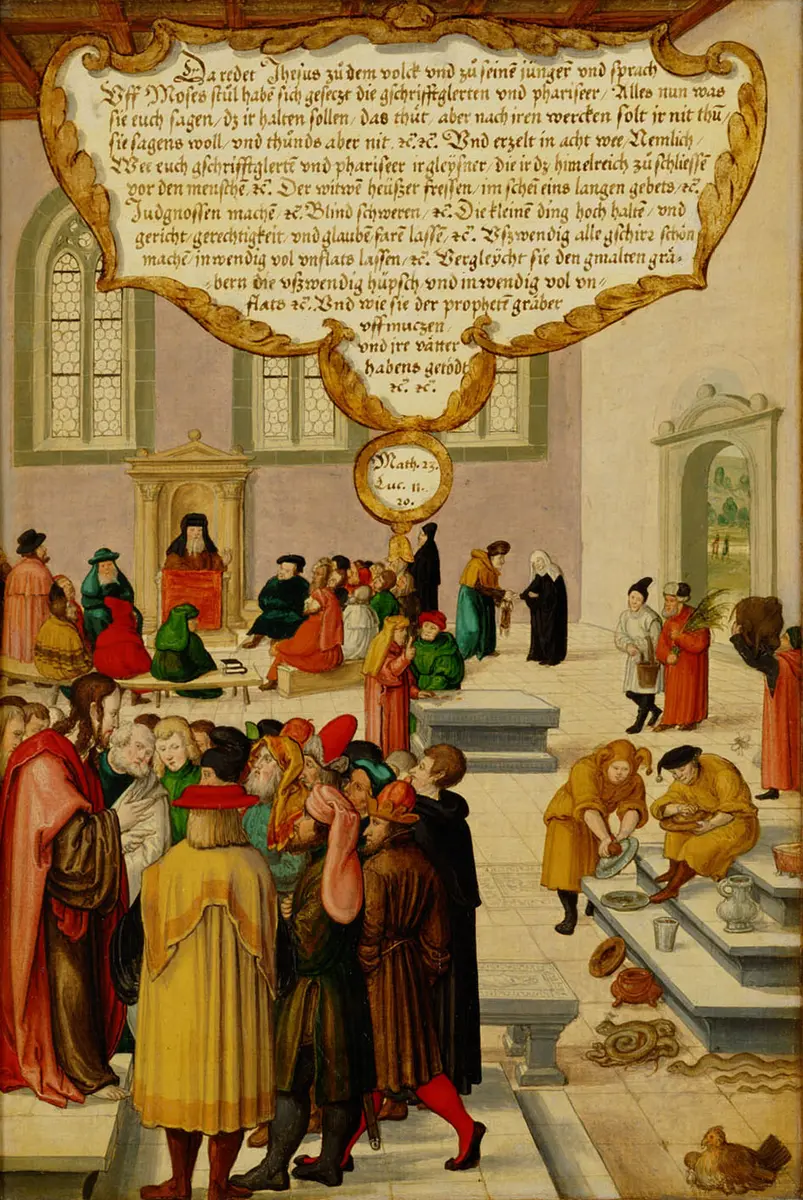 Da redet Jhesus zů dem volck vnd zů seinē jüngerē vnd sprach
Vff Moses stůl habē sich gesetzt die gschrifftglerten vnd phariseer / Alles nun was
sie euch sagen / dz ir halten sollen / das thůt, aber nach jren wercken solt jr nit thů /
sie sagens woll / vnd thůnds aber nit, ꝛc̃. ꝛc̃. Vnd erzelt in acht wee / Nemlich /
Wee euch gschrifftglertē vnd phariseer ir gleÿsner / die ir dz himelreich zů schliessē
vor den menschē, ꝛc̃. Der witwen heüßzer fressen / im schei eins langen gebets / ꝛc̃.
Judgnossen machē / ꝛc̃. Blind schweren / ꝛc̃. Die kleinen ding hoch haltē / vnd
gericht / gerechtigkeit / vnd glaubē farē lassē / ꝛc̃. Vſzwendig alle gschirꝛ schön
machē / inwendig vol vnflats lassen / ꝛc̃. Vergleÿcht sie den gmalten grä-
bern die vſzwendig hüpsch / vnd inwendig vol vn-
flats ꝛc̃. Vnd wie sie der prophetē gräber
vff mutzen /
vnd jre vätter
habens getödt
ꝛc̃. ꝛc̃.
Math. 23.
Luc. 11.
20.